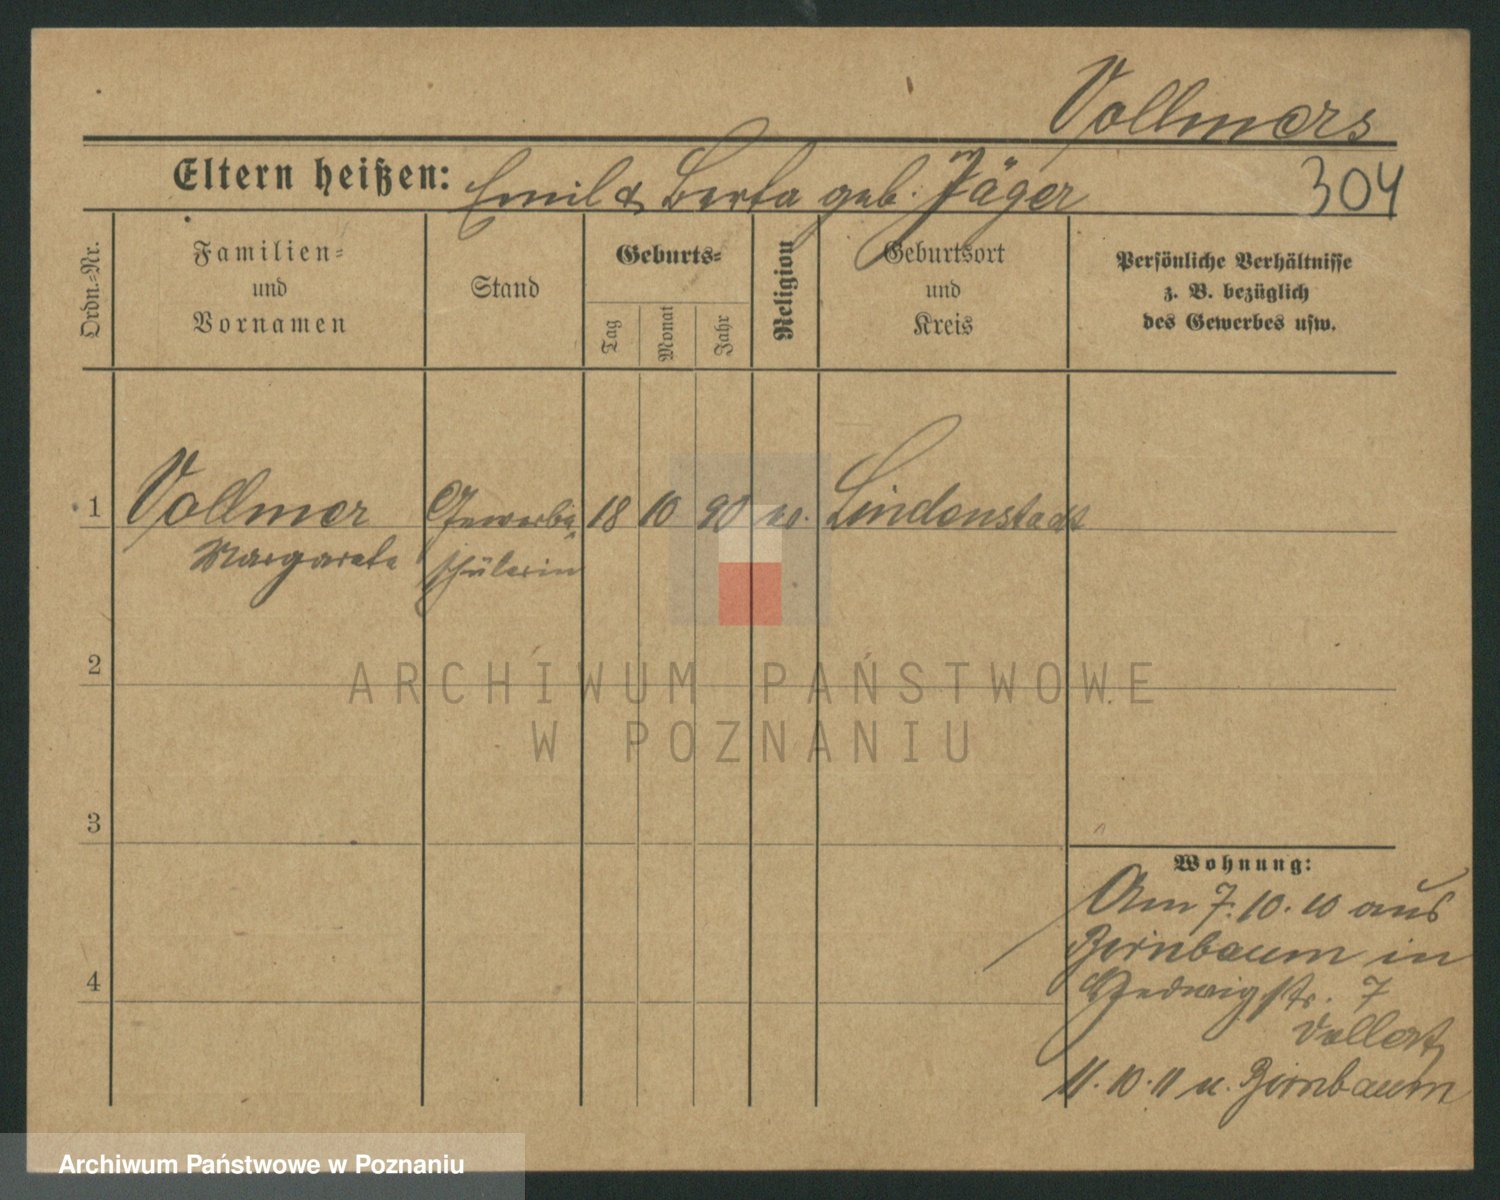 Vollmers
Eltern heißen: Emil & Berta geb. Jäger
304
Ordn.-Nr.
Familien-
und
Vornamen
Stand
Geburts-
Tag
Monat
Jahr
Religion
Geburtsort
und
Kreis
Persönliche Verhältnisse
z. B. bezüglich
des Gewerbes usw.
1 Vollmer Gewerbe 18 10 90 Lindenstadt
Margarete schülerin
2
3
4
Wohnung:
Am 7.10.10 aus
Birnbaum in
Hedwigstr. 7
11.10.11 n. Birnbaum
ARCHIWUM PAŃSTWOWE
W POZNANIU
Archiwum Państwowe w Poznaniu